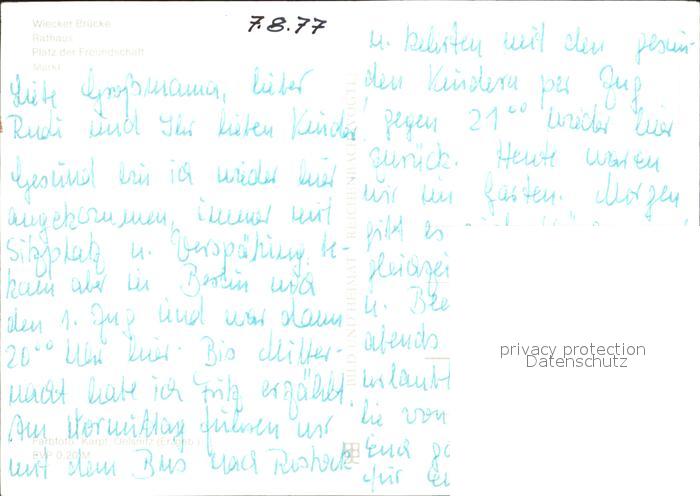 Wiecker Brücke
Rathaus
Platz der Freundschaft
Markt
7.8.77
Liebe Großmama, lieber
Rudi und Ihr lieben Kinder!
Gesund bin ich wieder hier
angekommen, immer mit
Sitzplatz u. Verspätung, be-
kam aber in Berlin noch
den 1. Zug und war dann
20⁰⁰ Uhr hier. Bis Mitter-
nacht habe ich Fritz erzählt.
Am Vormittag fuhren wir
mit dem Bus nach Rostock
u. kehrten mit den gesun-
den Kindern per Zug
gegen 21⁰⁰ wieder hier
zurück. Heute waren
wir im Garten. Morgen
gibt es
gleichzei
u.
abends
urlaubt
die von
Euch
für
BILD UND HEIMAT REICHENBACH (VOGTL)
Farbfoto: Karpf, Oelsnitz (Erzgeb.)
EVP 0,20 M
privacy protection
Datenschutz